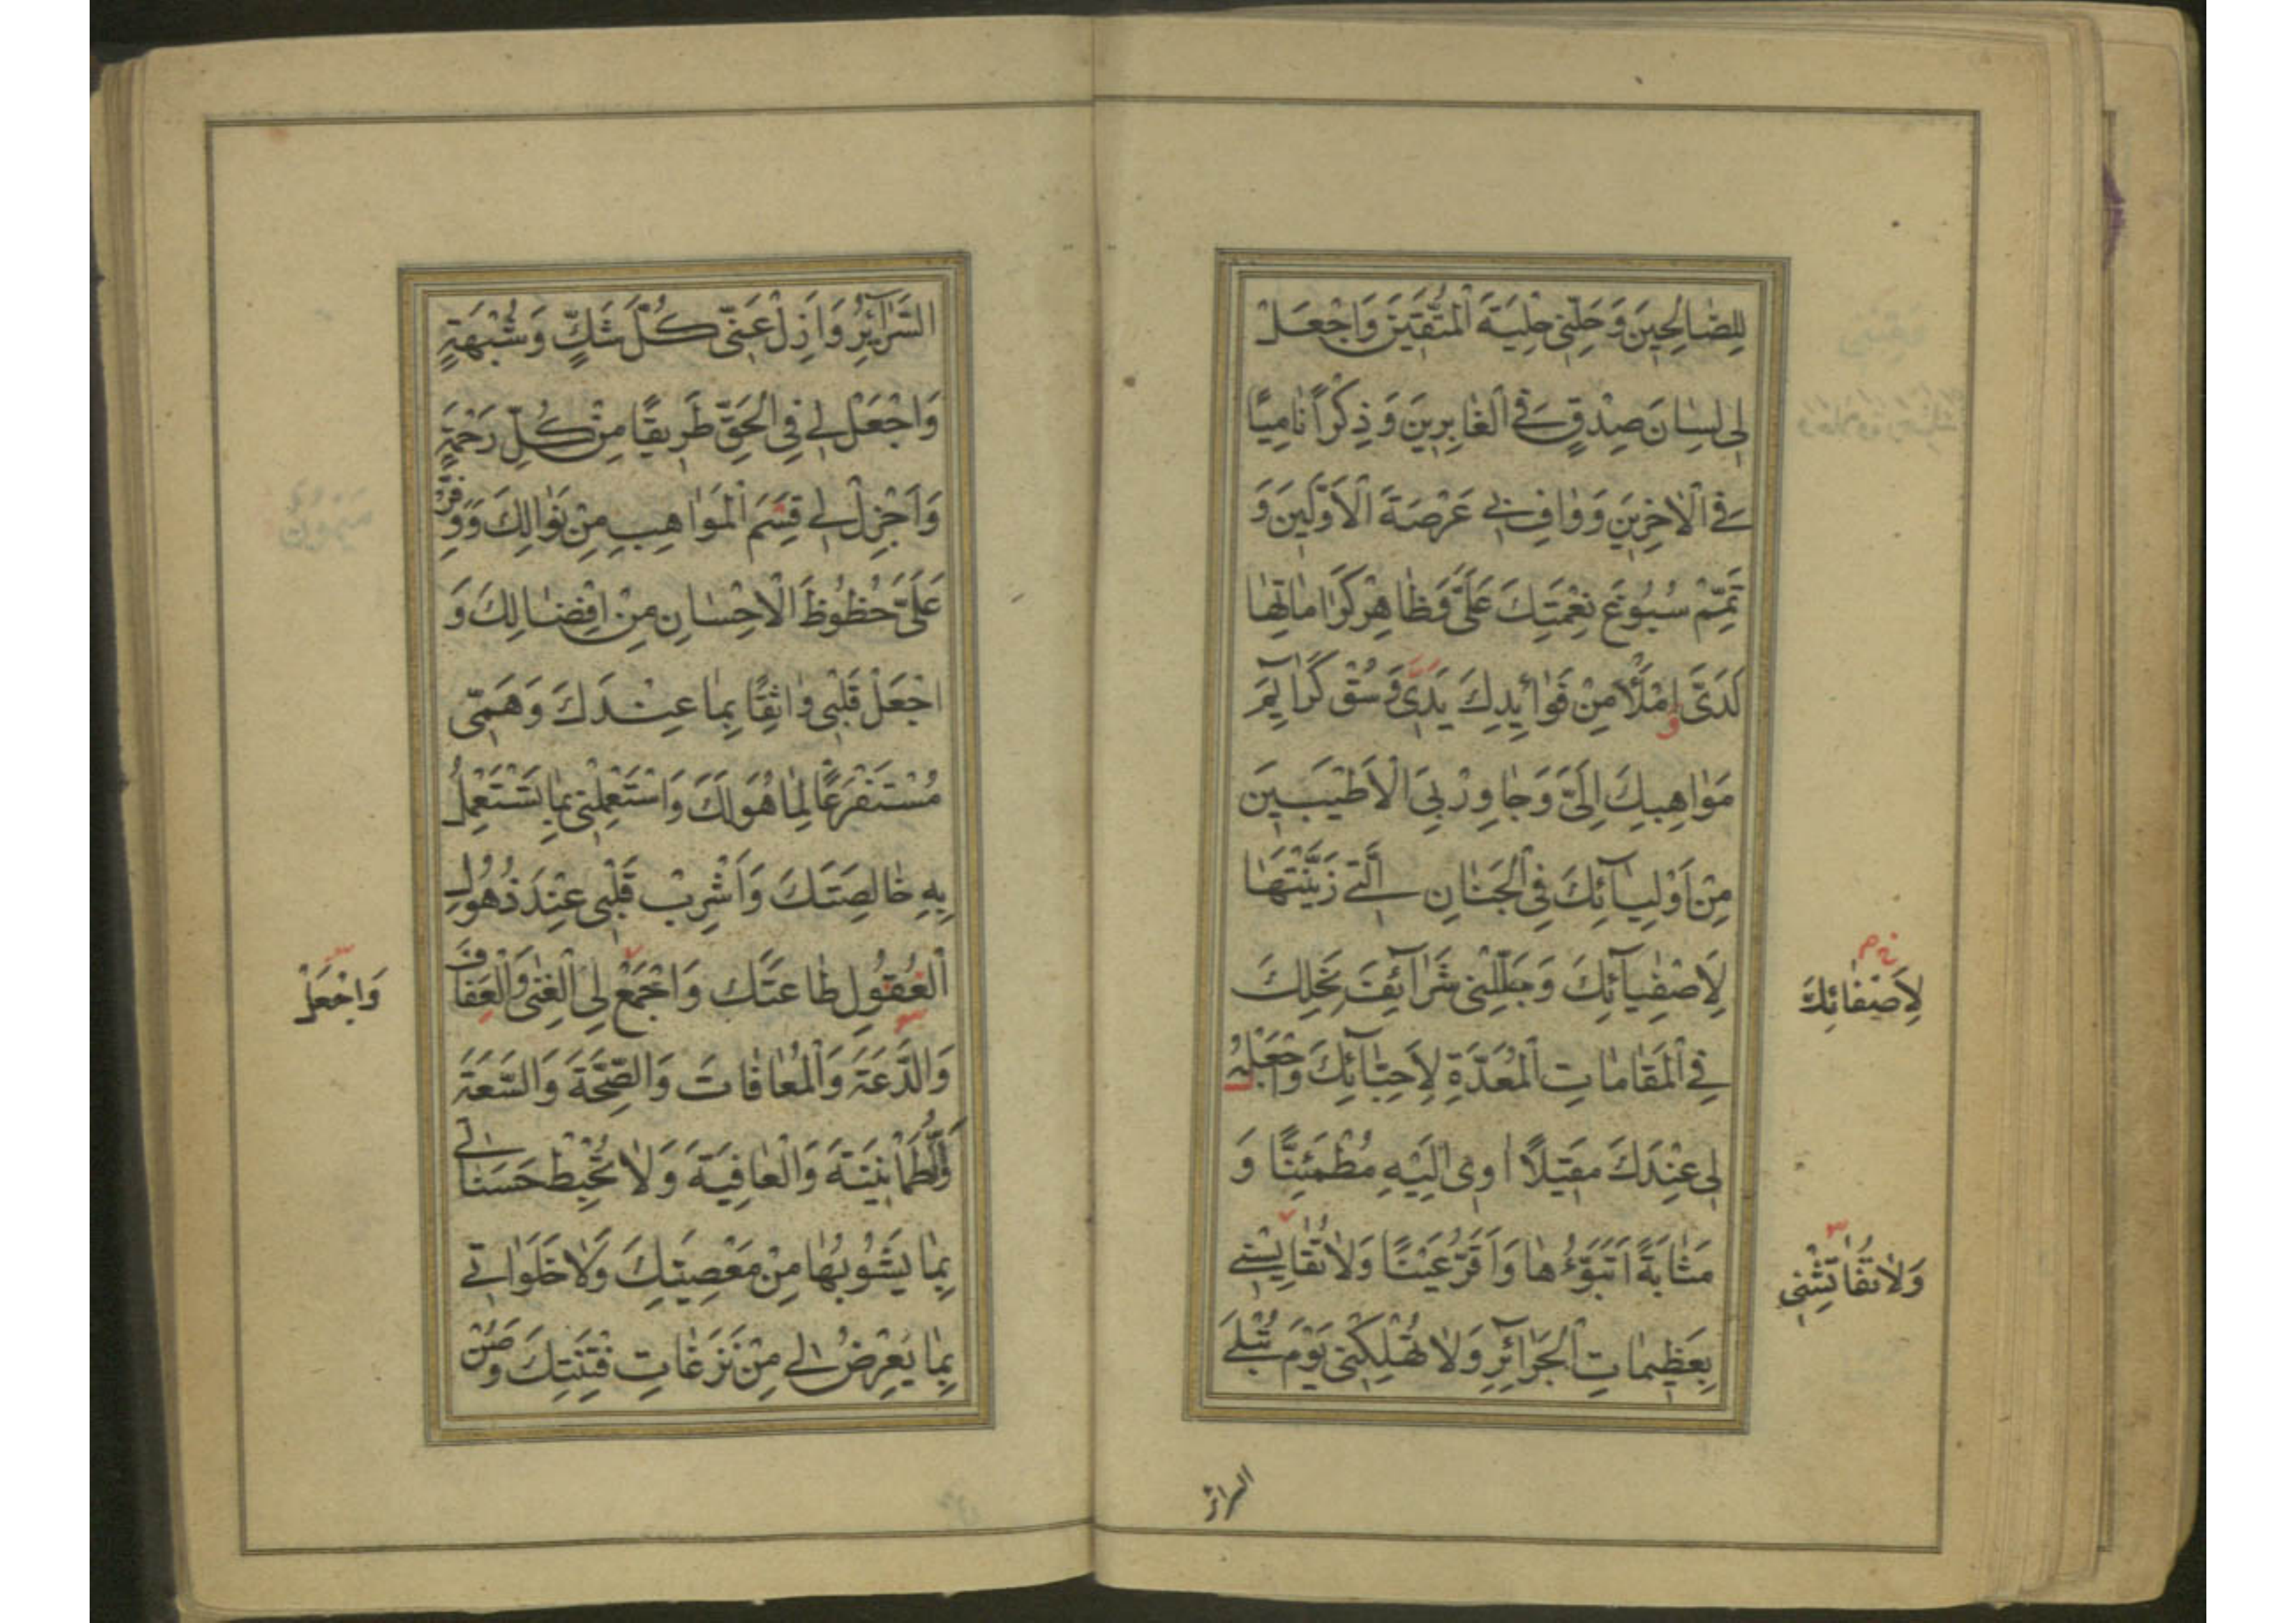 لِلصّٰالِحِينَ وَحَلِّنِي حِلْيَةَ الْمُتَّقِينَ وَاجْعَلْ
لِي لِسٰانَ صِدْقٍ فِي الْغٰابِرِينَ وَذِكْراً نٰامِيًا
فِي الْاٰخِرِينَ وَوٰافِ بِي عَرْصَةَ الْاَوَّلِينَ وَ
تَمِّمْ سُبُوغَ نِعْمَتِكَ عَلَيَّ وَظٰاهِرْ كَرٰامٰاتِهٰا
لَدَيَّ وَامْلَأْ مِنْ فَوٰائِدِكَ يَدَيَّ وَسُقْ كَرٰائِمَ
مَوٰاهِبِكَ اِلَيَّ وَجٰاوِرْ بِيَ الْاَطْيَبِينَ
مِنْ اَوْلِيٰآئِكَ فِي الْجِنٰانِ الَّتِي زَيَّنْتَهٰا
لِاَصْفِيٰآئِكَ وَجَلِّلْنِي شَرٰآئِفَ نِحَلِكَ
فِي الْمَقٰامٰاتِ الْمُعَدَّةِ لِاَحِبّٰآئِكَ وَاجْعَلْ
لِي عِنْدَكَ مَقِيلًا اٰوِي اِلَيْهِ مُطْمَئِنًّا وَ
مَثٰابَةً اَتَبَوَّؤُهٰا وَاَقَرُّ عَيْنًا وَلٰا تُقٰايِسْنِي
بِعَظِيمٰاتِ الْجَرٰآئِرِ وَلٰا تُهْلِكْنِي يَوْمَ تُبْلَى
لِاَصْفٰائِكَ
السرائر
السَّرٰآئِرُ وَاَزِلْ عَنِّي كُلَّ شَكٍّ وَشُبْهَةٍ
وَاجْعَلْ لِي فِي الْحَقِّ طَرِيقًا مِنْ كُلِّ رَحْمَةٍ
وَاَجْزِلْ لِي قِسَمَ الْمَوٰاهِبِ مِنْ نَوٰالِكَ وَوَفِّرْ
عَلَيَّ حُظُوظَ الْاِحْسٰانِ مِنْ اِفْضٰالِكَ وَ
اجْعَلْ قَلْبِي وٰاثِقًا بِمٰا عِنْدَكَ وَهَمِّي
مُسْتَفْرَغًا لِمٰا هُوَ لَكَ وَاسْتَعْمِلْنِي بِمٰا تَسْتَعْمِلُ
بِهِ خٰالِصَتَكَ وَاَشْرِبْ قَلْبِي عِنْدَ ذُهُولِ
الْعُقُولِ طٰاعَتَكَ وَاجْمَعْ لِيَ الْغِنٰى وَالْعَفٰافَ
وَالدَّعَةَ وَالْمُعٰافٰاتَ وَالصِّحَّةَ وَالسَّعَةَ
وَالطُّمَأْنِينَةَ وَالْعٰافِيَةَ وَلٰا تُحْبِطْ حَسَنٰاتِي
بِمٰا يَشُوبُهٰا مِنْ مَعْصِيَتِكَ وَلٰا خَلَوٰاتِي
بِمٰا يَعْرِضُ لِي مِنْ نَزَغٰاتِ فِتْنَتِكَ وَصُنْ
وَاجْعَلْ